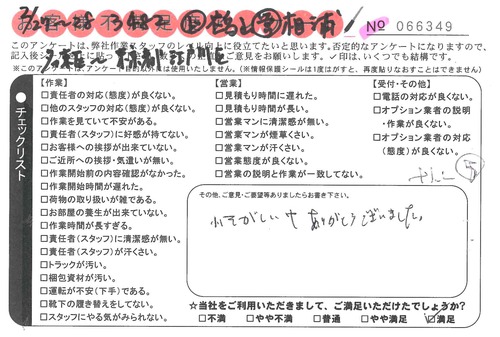 No 066349
このアンケートは、弊社作業スタッフのレベル向上に役立てたいと思います。否定的なアンケートになりますので、
ご意見をお願いします。✓印は、いくつでも結構です。
※このアンケートは、
使用いたしません。(※情報保護シールは1度はがすと、再度貼りなおすことはできません)
チェックリスト
【作業】
□責任者の対応(態度)が良くない。
□他のスタッフの対応(態度)が良くない。
□作業を見ていて不安がある。
□責任者(スタッフ)に好感が持てない。
□お客様への挨拶が出来ていない。
□ご近所への挨拶・気遣いが無い。
□作業開始前の内容確認がなかった。
□作業開始時間が遅れた。
□荷物の取り扱いが雑である。
□お部屋の養生が出来ていない。
□作業時間が長すぎる。
□責任者(スタッフ)に清潔感が無い。
□責任者(スタッフ)が汗くさい。
□トラックが汚い。
□梱包資材が汚い。
□運転が不安(下手)である。
□靴下の履き替えをしてない。
□スタッフにやる気がみられない。
【営業】
□見積もり時間に遅れた。
□見積もり時間が長い。
□営業マンに清潔感が無い。
□営業マンが煙草くさい。
□営業マンが汗くさい。
□営業態度が良くない。
□営業の説明と作業が一致してない。
【受付・その他】
□電話の対応が良くない。
□オプション業者の説明
・作業が良くない。
□オプション業者の対応
(態度)が良くない。
5
その他、ご意見・ご要望等ありましたらお書き下さい。
いそがしい中 ありがとうございました。
☆当社をご利用いただきまして、ご満足いただけたでしょうか?
□不満 □やや不満 □普通 □やや満足 ☑満足